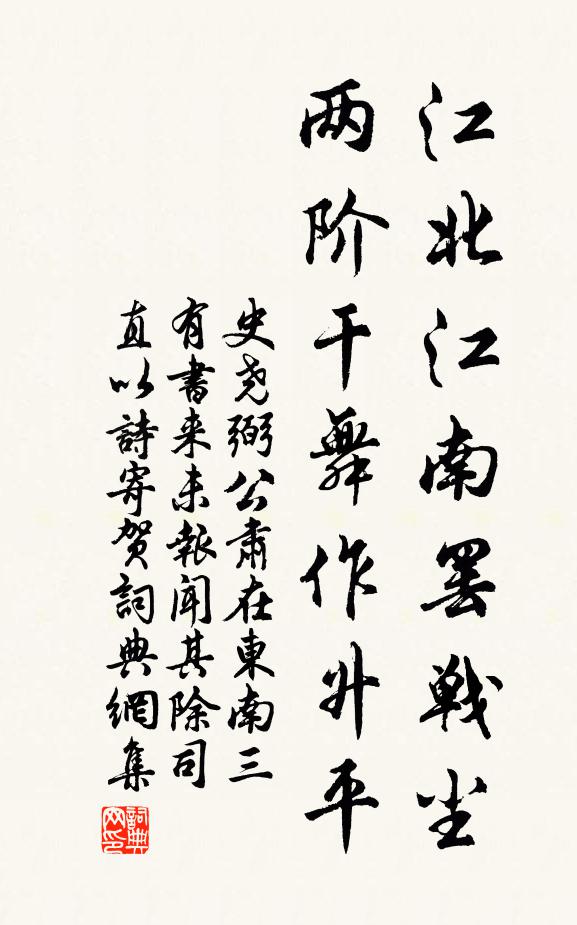 江北江南罢戦尘
两阶干舞作升平
史尧弼公肃在東南三
有書来未報闻其除司
直以詩寄贺詞典網集
詞典网印